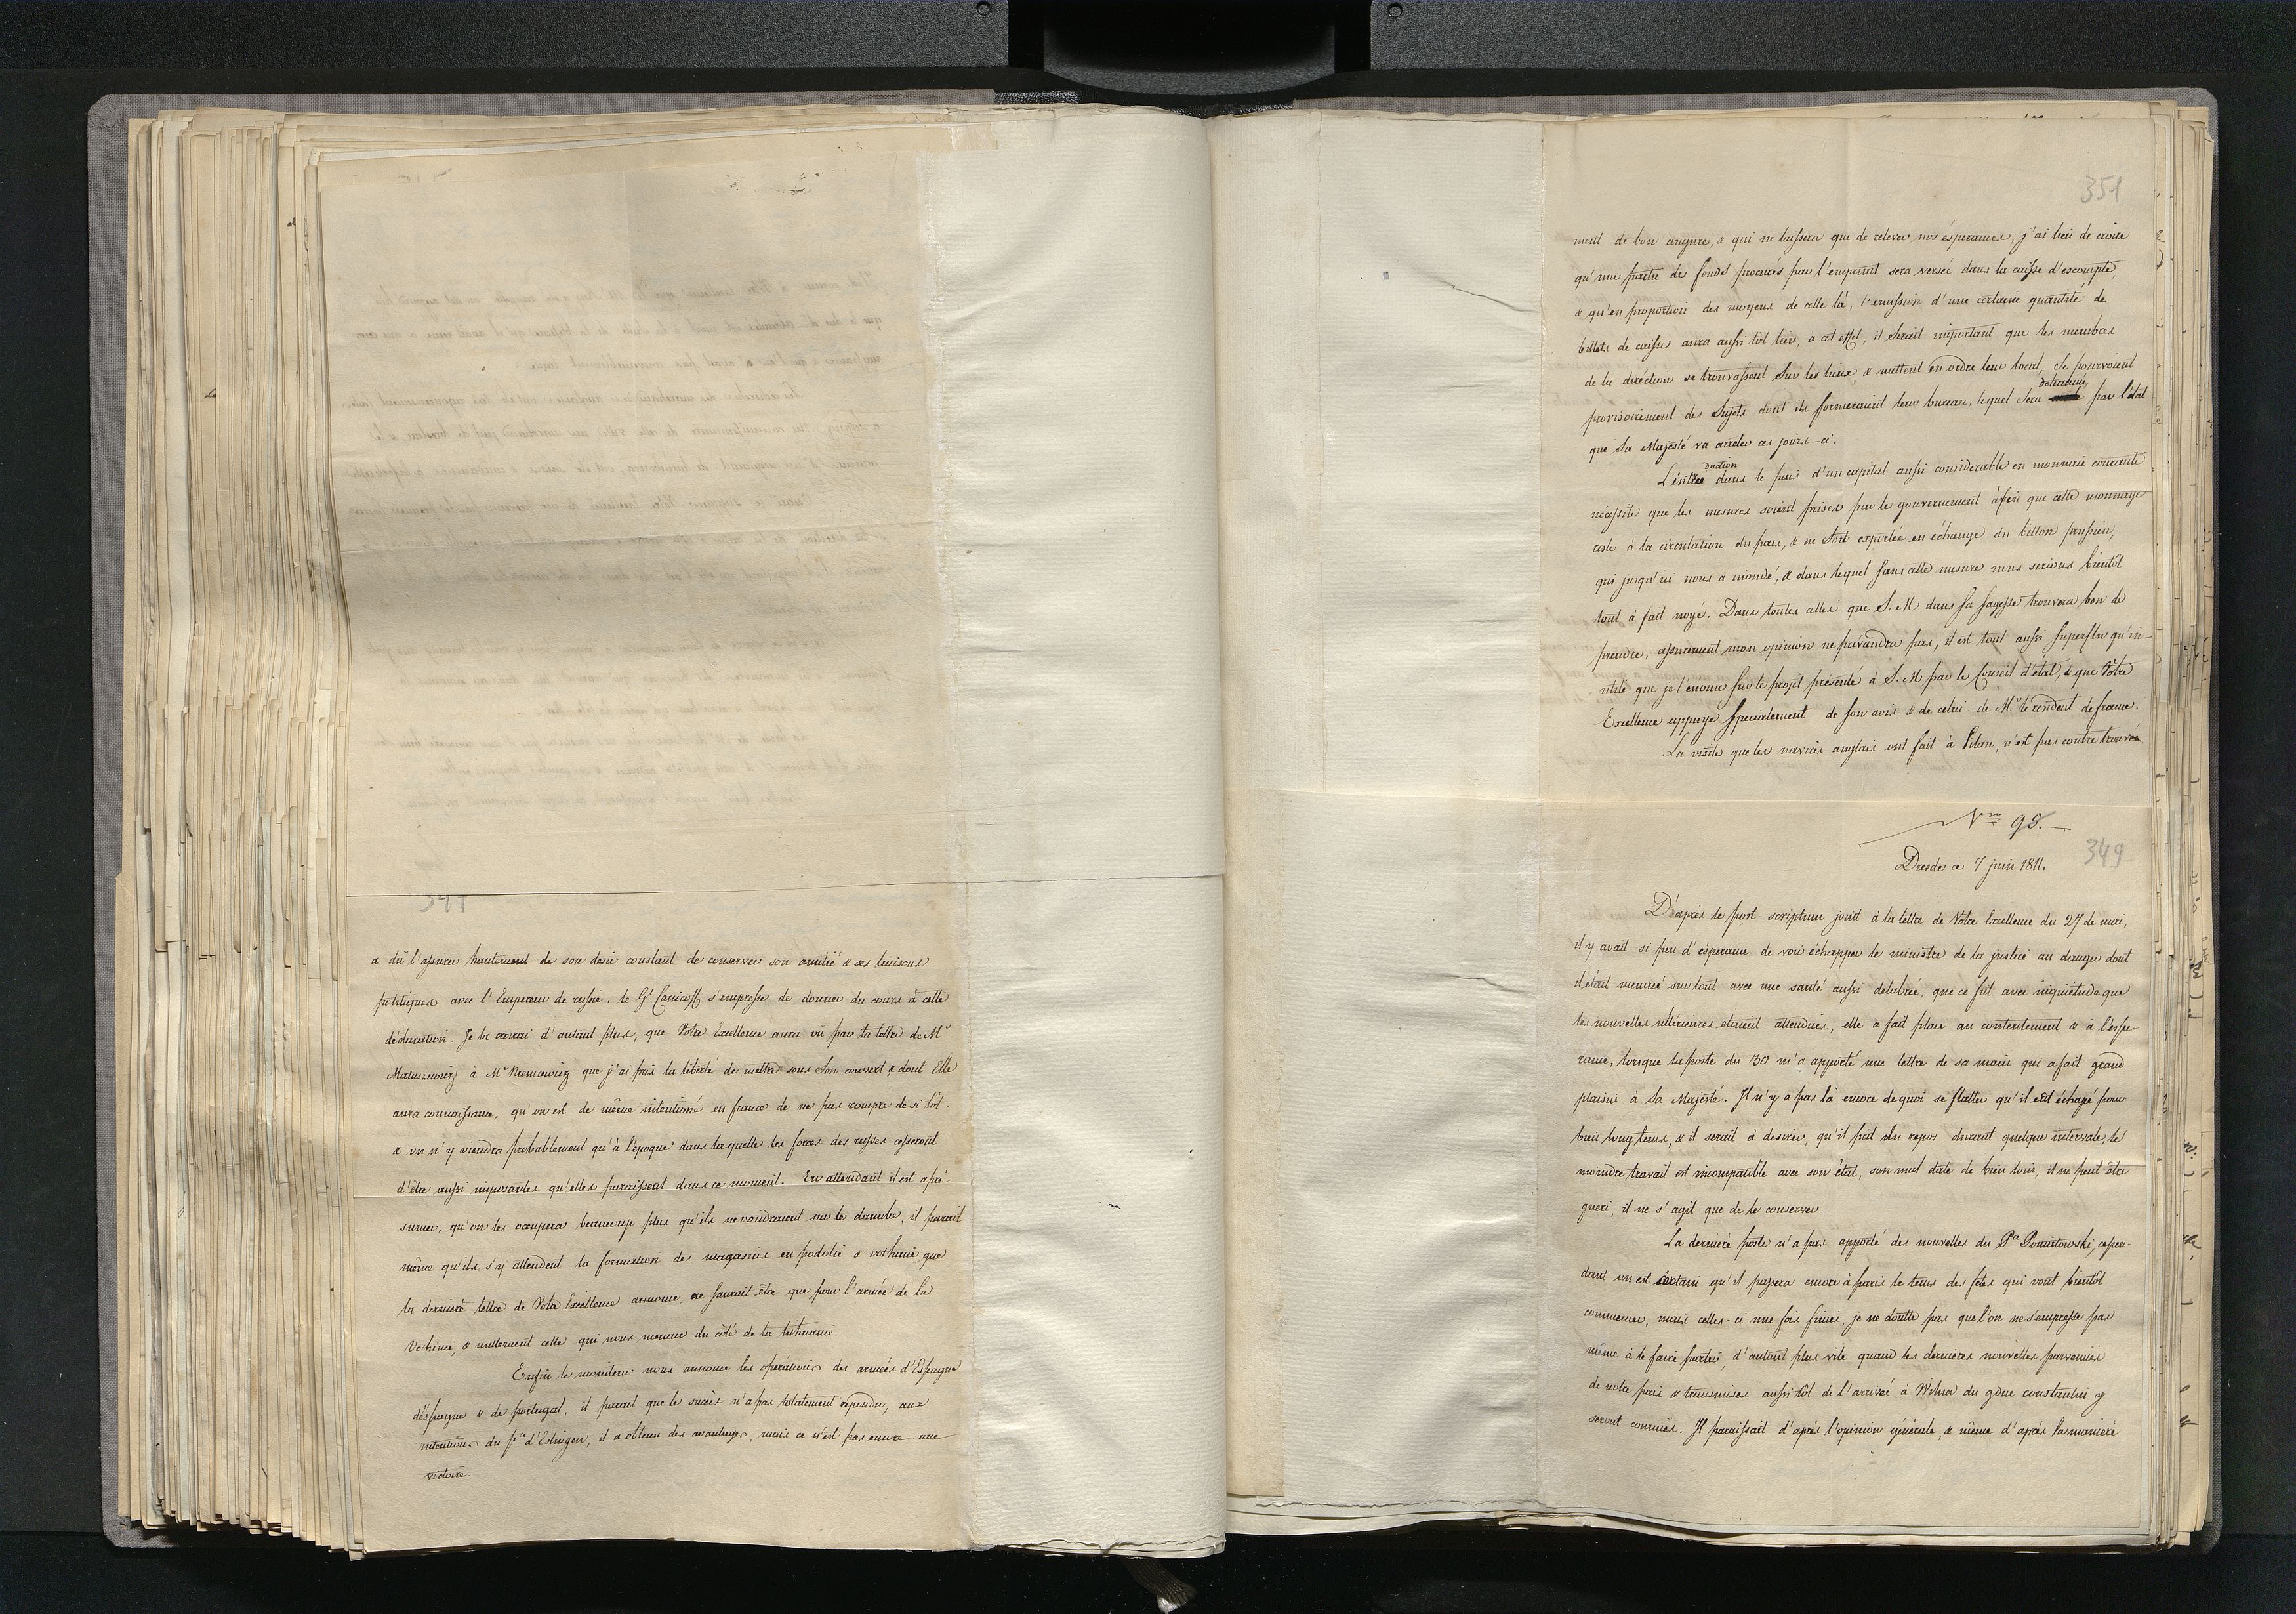 a dû l'assurer hautement de son desir constant de conserver son amitié & ses liaisons
politiques avec l'Empereur de russie. le Gl Canicoff s'empresse de donner du cours à cette
déclaration. Je la croirai d'autant plus, que Votre Excellence aura vû par la lettre de Mr
Matuszewicz à Mr Niemcewicz que j'ai pris la liberté de mettre sous Son couvert & dont Elle
aura connaissance, qu'on est de même intentioné en france de ne pas rompre de si tôt.
& on n'y viendra probablement qu'à l'époque dans laquelle les forces des russes cesseront
d'être aussi imposantes qu'elles paraissent dans ce moment. En attendant il est à pré-
sumer, qu'on les occupera beaucoup plus qu'ils ne voudraient sur le danube, il parait
même qu'ils s'y attendent la formation des magasins en podolie & volhinie que
la dernière lettre de Votre Excellence annonce, ne saurait être que pour l'armée de la
Valachie, & nullement celle qui nous menace du côté de la lithuanie.
Enfin le moniteur nous annonce les opérations des armées d'Espagne
d'éspagne & de portugal, il parait que le succès n'a pas totalement répondu, aux
intentions du Pce d'Eslingen, il a obtenu des avantages, mais ce n'est pas encore une
victoire.
351
ment de bon augure, & qui ne laissera que de relever nos ésperances, j'ai lieu de croire
qu'une partie des fonds procurés par l'emprunt sera versée dans la caisse d'escompte,
& qu'en proportion des moyens de celle là, l'emission d'une certaine quantité de
billets de caisse aura aussi tôt lieu, à cet effet, il serait important que les membres
de la diréction se trouvassent sur les lieux, & mettent en ordre leur local, se pourvoient
provisoirement des sujets dont ils formeraient leur bureau, lequel sera determiné par l'état
que Sa Majesté va arreter ces jours-ci.
L'introduction dans le pais d'un capital aussi considerable en monnaie courante
nécessite que les mesures soient prises par le gouvernement àfin que cette monnaye
reste à la circulation du pais, & ne soit exportée en échange du billon prussien,
qui jusqu'ici nous a inondé, & dans lequel sans cette mesure nous serions bientôt
tout à fait noyé. Dans toutes celles que S. M dans sa sagesse trouvera bon de
prendre, assurement mon opinion ne prévaudra pas, il est tout aussi superflu qu'in-
utile que je l'enonce sur le projet présenté à S. M par le Conseil d'état, & que Votre
Excellence appuye specialement de son avis & de celui de Mr le résident de france.
La visite que les navires anglais ont fait à Pilau, n'est pas contre trouvée
Nro 95.
349
Dresde ce 7 juin 1811.
D'après le post-scriptum joint à la lettre de Votre Excellence du 27 de mai,
il y avait si peu d'ésperance de voir échapper le ministre de la justice au danger dont
il était menacé sur tout avec une santé aussi delabrée, que ce fut avec inquiétude que
les nouvelles ultérieures etaient attendues, elle a fait place au contentement & à l'espe-
rance, lorsque la poste du 30 m'a apporté une lettre de sa main qui a fait grand
plaisir à Sa Majesté. Il n'y a pas là encore de quoi se flatter qu'il est échapé pour
bien longtems, & il serait à desirer, qu'il prit du repos durant quelque intervale, le
moindre travail est incompatible avec son état, son mal date de bien loin, il ne peut être
gueri, il ne s'agit que de le conserver
La dernière poste n'a pas apporté des nouvelles du Pce Poniatowski, cepen-
dant on est certain qu'il passera encore à paris le tems des fêtes qui vont bientôt
commencer, mais celles-ci une fois finies, je ne doutte pas que l'on ne s'empresse pas
même à le faire partir, d'autant plus vite quand les dernières nouvelles parvenües
de notre pais & transmises aussi tôt de l'arrivée à Wilna du gduc constantin y
seront connües. Il paraissait d'après l'opinion générale, & même d'après la manière